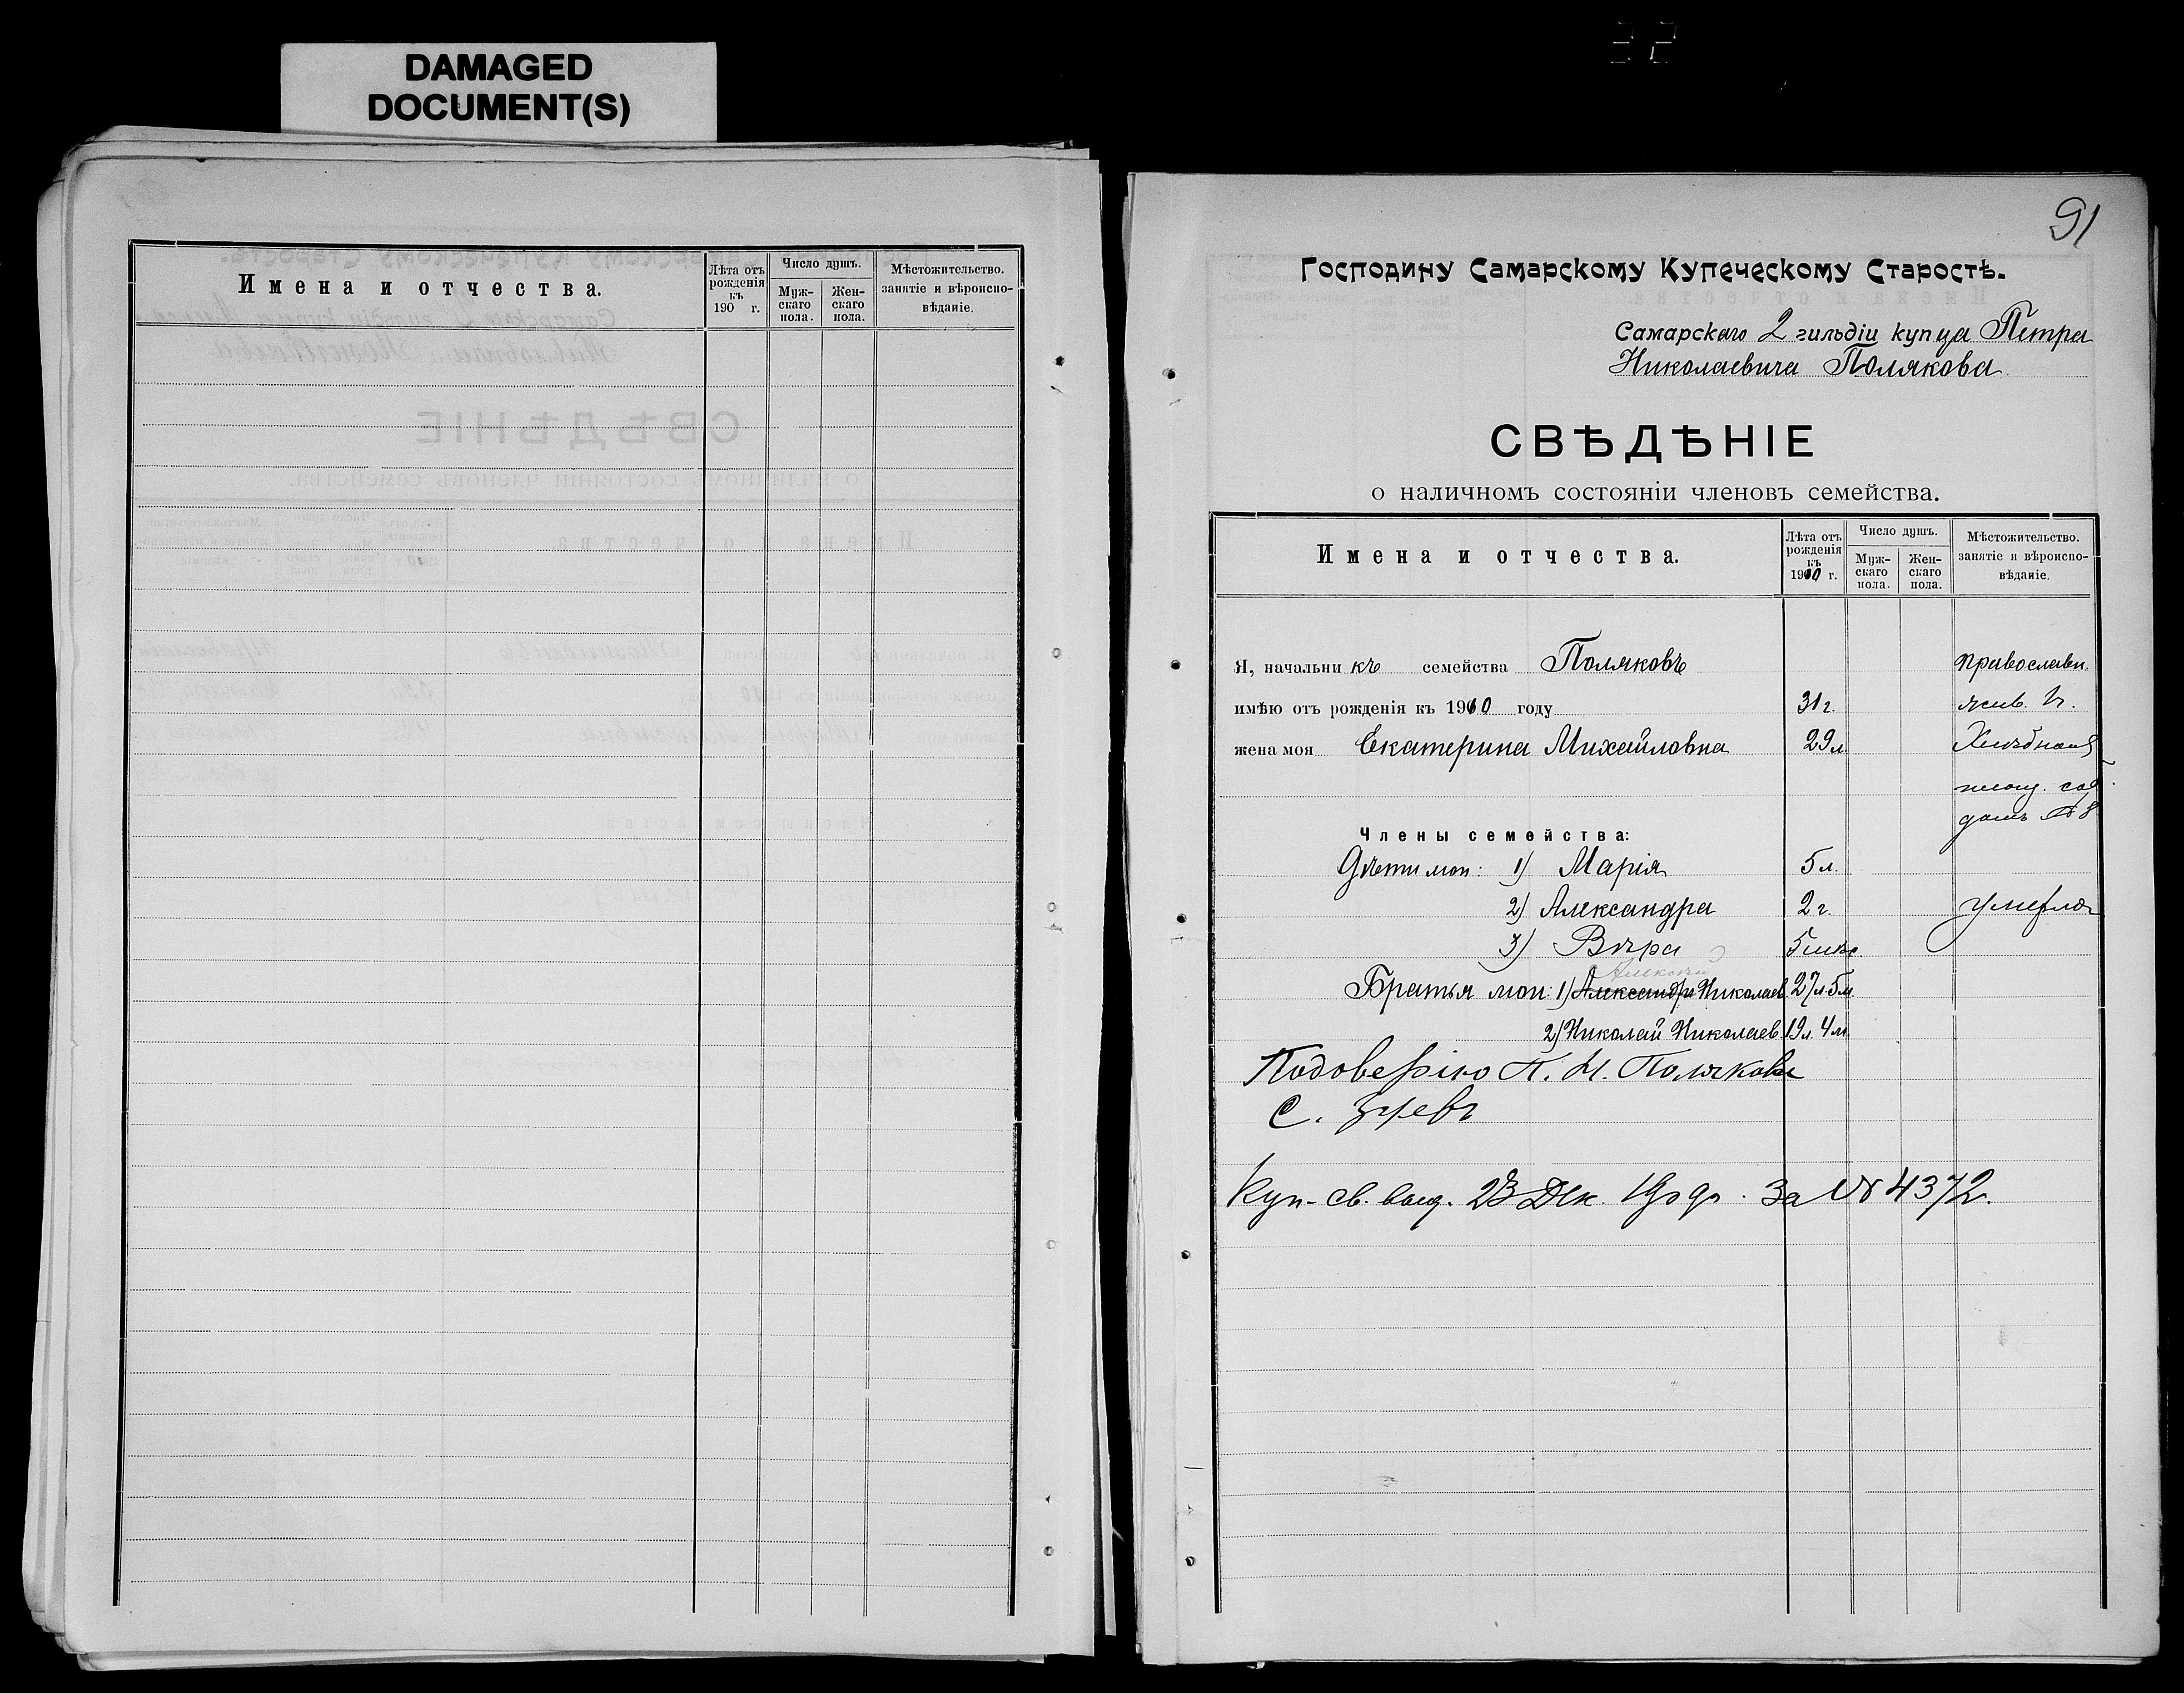 DAMAGED
DOCUMENT(S)
Имена и отчества.
Лѣта отъ рожденія къ 190 г.
Число душъ.
Муж-скаго пола.
Жен-скаго пола.
Мѣстожительство. занятіе и вѣроиспо-вѣданіе.
91
Господину Самарскому Купеческому Старостѣ.
Самарскаго 2 гильдіи купца Петра
Николаевича Полякова
СВѢДѢНІЕ
о наличномъ состояніи членовъ семейства.
Имена и отчества.
Лѣта отъ рожденія къ 1910 г.
Число душъ.
Муж-скаго пола.
Жен-скаго пола.
Мѣстожительство. занятіе и вѣроиспо-вѣданіе.
Я, начальникъ семейства Поляковъ православн.
имѣю отъ рожденія къ 1910 году 31 г. жив. въ
жена моя Екатерина Михайловна 29 л Хлѣбной
площ. соб.
домъ № 8
Члены семейства:
Дѣти мои: 1) Марія 5 л.
2) Александра 2 г. умерла
3) Вѣра 5 мѣс
Алексѣй
Братья мои: 1) Александръ Николаев. 27 л. 5 м.
2) Николай Николаев. 19 л. 4 м.
Подоверію П. Н. Полякова
С.
Куп. св. выд. 23 Дек. 1909 г. За № 4372.